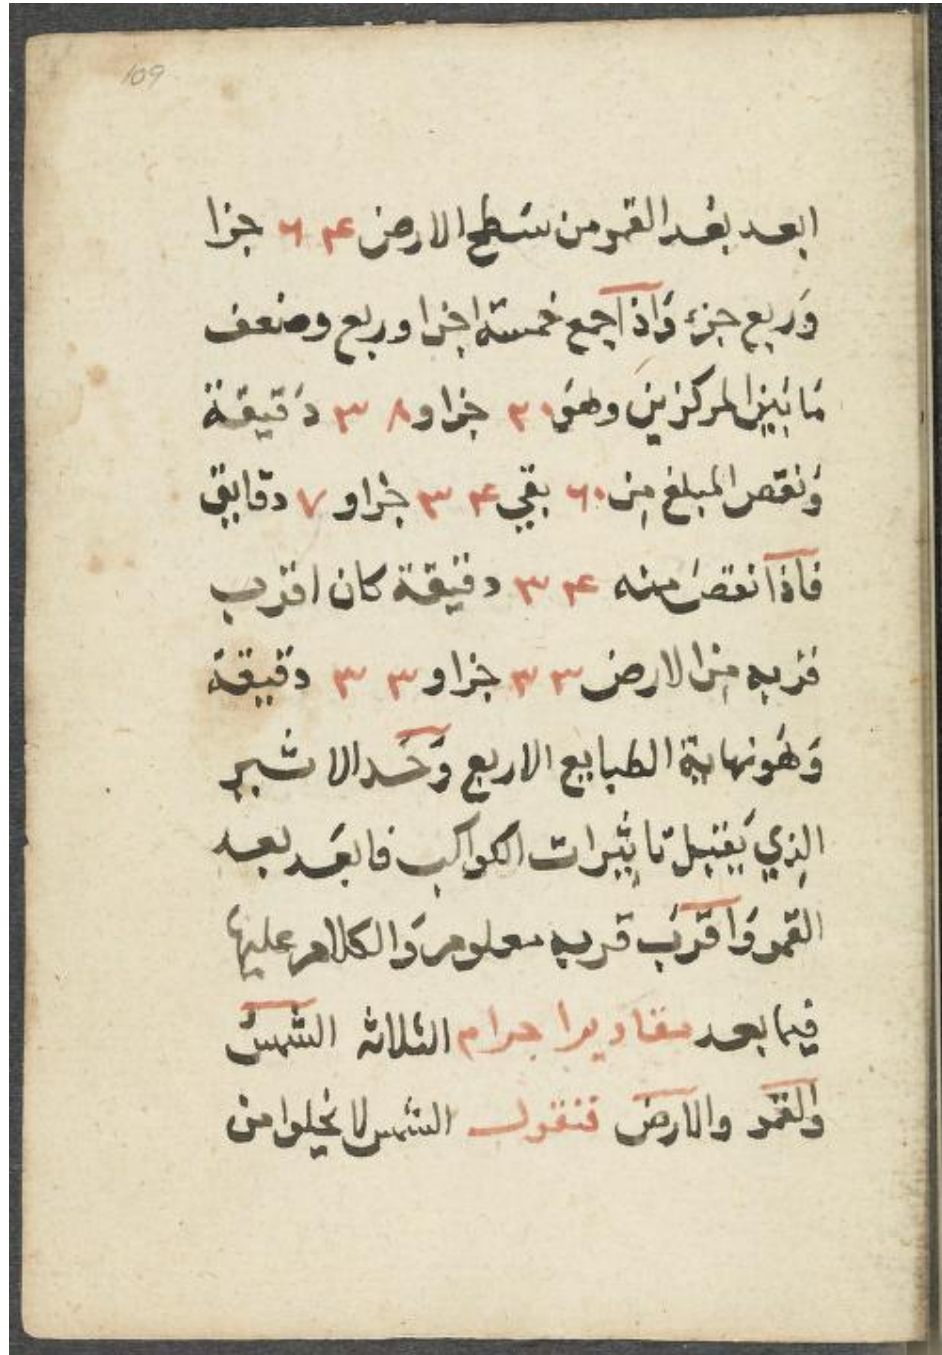 109
ابعد بعد القمر من سطح الارض ۶۴ جزا
وربع جزء واذا جمع خمسة اجزا وربع وضعف
ما بين المركزين وهو ۲۰ جزا و ۳۸ دقيقة
ونقص المبلغ من ۶۰ بقي ۳۴ جزا و ۷ دقايق
فاذا نقص منه ۳۴ دقيقة كان اقرب
قربه من الارض ۳۳ جزا و ۳۳ دقيقة
وهو نهاية الطبايع الاربع وحد الاثير
الذي يقبل تاثيرات الكواكب فابعد بعد
القمر واقرب قربه معلوم والكلام عليها
فيما بعد مقادير اجرام الثلاثة الشمس
والقمر والارض فنقول الشمس لا يخلوا من